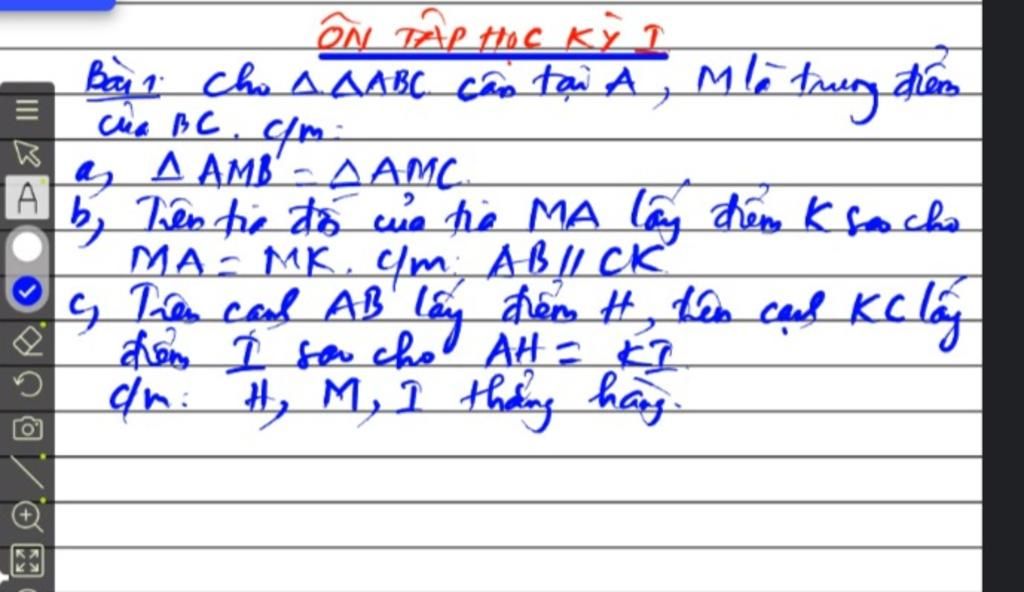 ÔN TẬP HỌC KỲ I
Bài 1: Cho △ △ABC cân tại A, M là trung điểm
của BC. c/m:
a, △ AMB = △ AMC.
b, Trên tia đối của tia MA lấy điểm K sao cho
MA = MK. c/m: AB // CK
c, Trên cạnh AB lấy điểm H, trên cạnh KC lấy
điểm I sao cho AH = KI
c/m: H, M, I thẳng hàng.
A